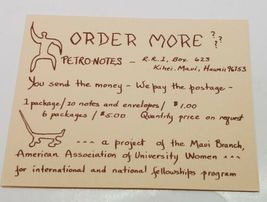 ORDER MORE ? ? ?
PETRO-NOTES - R.R.1, Box 623
Kihei, Maui, Hawaii 96753
You send the money - We pay the postage -
1 package/10 notes and envelopes/ $1.00
6 packages / $5.00 Quantity price on request
--- a project of the Maui Branch,
American Association of University Women ---
for international and national fellowships program